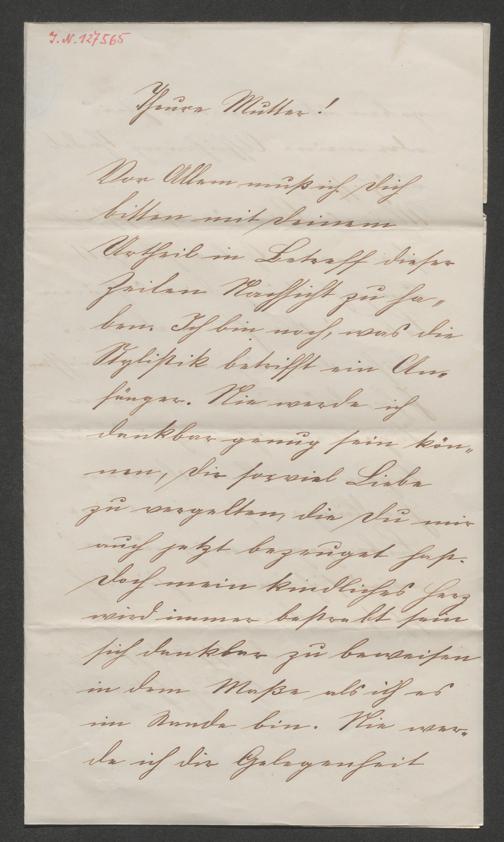 J. N. 127565
Theure Mutter!
Vor Allem muß ich Dich
bitten mit Deinem
Urtheil in Betreff dieser
Zeilen Nachsicht zu ha„
ben. Ich bin noch, was die
Stylistik betrifft ein An„
fänger. Nie werde ich
dankbar genug sein kön„
nen, Dir so viel Liebe
zu vergelten, die Du mir
auch jetzt bezeuget hast.
Doch mein kindliches Herz
wird immer bestrebt sein
sich dankbar zu beweisen
in dem Maße als ich es
im Stande bin. Nie wer„
de ich die Gelegenheit